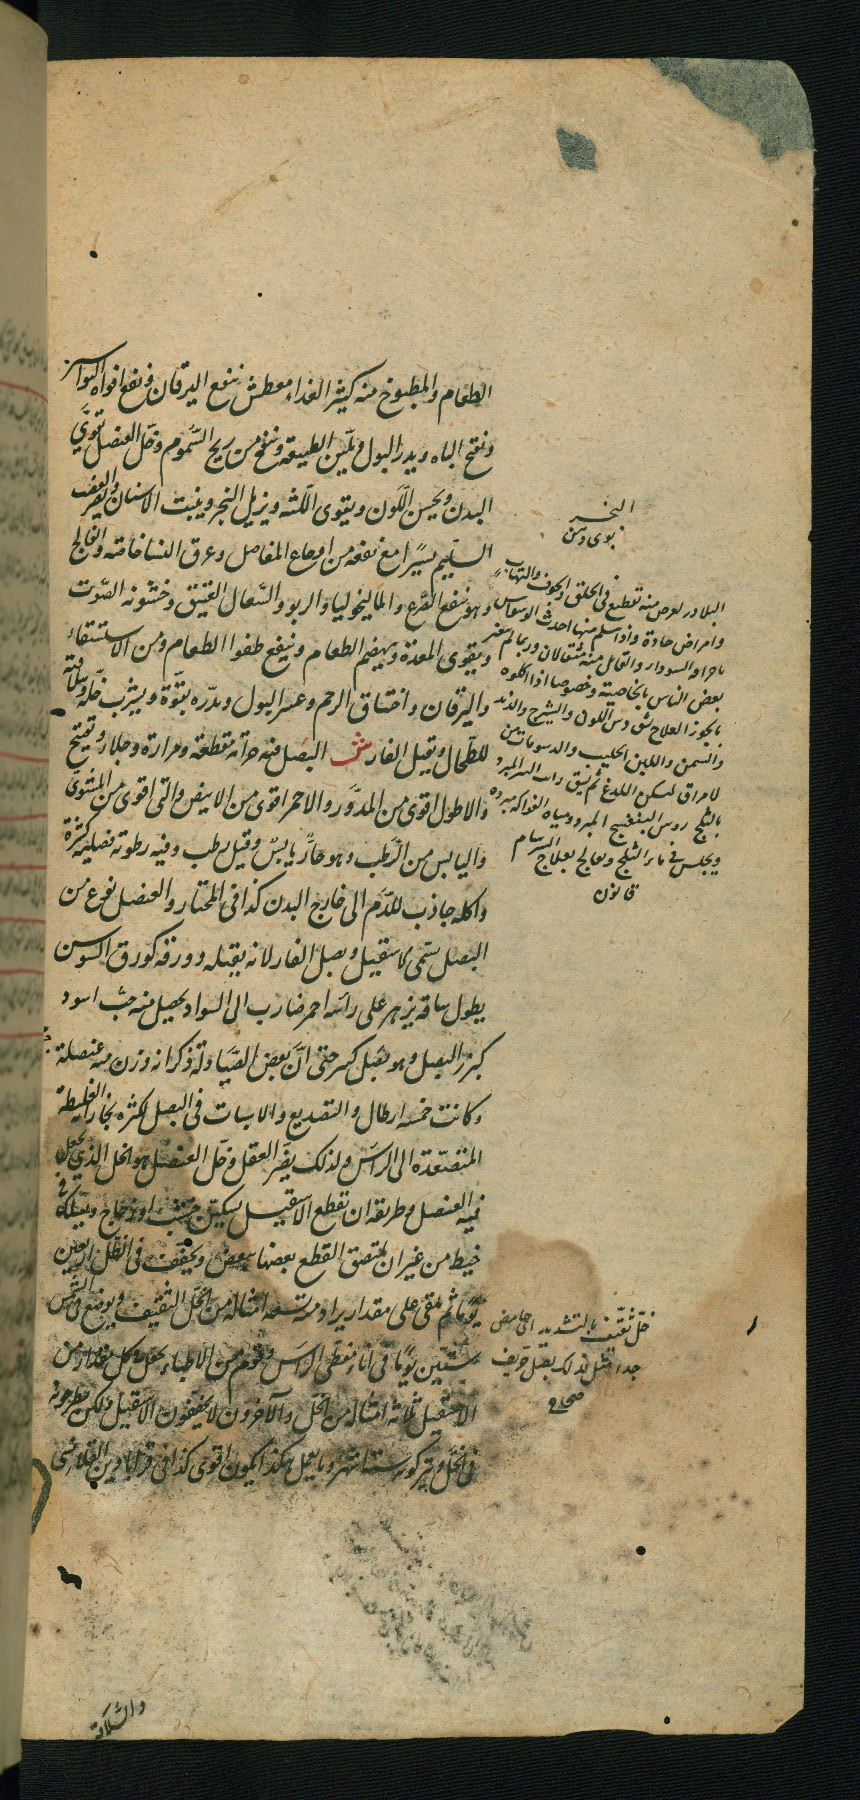 الطعام والمطبوخ منه كيثر الغذاء معطش ينفع اليرقان ويفتح افواه البواسير
ويفتح الباه ويدر البول ويلين الطبيعة وينفع من ريح السموم وخل العنصل يقوي
البدن ويحسن اللون ويقوى اللثه ويزيل البخر ويثبت الاسنان ويضر العصب
السليم يسيرا مع نفعه من اوجاع المفاصل وعرق النسا خاصته والفالج
وهو ينفع الصرع والماليخوليا والربو والسعال العتيق وخشونه الصوت
ويقوى المعدة ويهضم الطعام وينفع طفوا الطعام ومن الاستسقاء
واليرقان واختناق الرحم وعسر البول ويدره بقوة ويشرب خله وسلاقته
للطحال ويقتل الفار ش البصل فيه حرافه مقطعة ومرارة وجلاء وتفتيح
والاطول اقوى من المدور والاحمر اقوى من الابيض والنى اقوى من المشوى
واليابس من الرطب وهو حار يابس وقيل رطب وفيه رطوبه فضليه كثرة
واكله جاذب للدم الى خارج البدن كذا فى المختار والعنصل نوع من
البصل سمى لاسقيل وبصل الفار لانه يقتله وورقه كورق السوسن
يطول ساقه يزهر على راسه احمر ضارب الى السواد يحصل منه حب اسود
كبزر البصل وهو بصل كبير حتى ان بعض الصيادلة ذكر انه وزن منه عنصلة
وكانت خمسه ارطال والتصديع والاسبات فى البصل لكثره بخاراته الغليظة
المتصعدة الى الراس ولذلك يضر العقل وخل العنصل هو الخل الذي يجعل
فيه العنصل وطريقه ان تقطع الاسقيل بسكين خشب او زجاج ويسلك فى
خيط من غير ان يلتصق القطع بعضها ببعض ويجفف فى الظل اربعين
يوما ثم يلقى على مقدار يراد منه تسعه امثاله من الخل الثقيف ويوضع فى الشمس
ستين يوما فى اناء مغطى الراس وقوم من الاطباء يجعل لكل مقدار من
الاسقيل ثلاثه امثاله من الخل والآخرون لا يجففون الاسقيل ولكن يطرحونه
فى الخل ويتركونه ستة اشهر وما يعمل هكذا يكون اقوى كذا فى قراباذين القلانسى
والسلاقه
البخر
بوى دهن
البلادر يعرض منه تقطيع فى الحلق والجوف والتهاب
وامراض حادة واذا سلم منها احدث الوسواس
باحراقه السوداء والقاتل منه مثقالان وربما لم يضر
بعض الناس بالخاصية وخصوصا اذا اكلوه
بالجوز العلاج يسقى دهن اللوز والشيرج والزبد
والسمن واللبن الحليب والدسومات من
الامراق ليسكن اللدغ ثم يسقى رائب البقر المبرد
بالثلج ودهن البنفسج المبرد ومياه الفواكه مبردة
ويجلس فى ماء الثلج ويعالج بعلاج السرسام
قانون
خل ثقيف بالتشديد اى حامض
جدا مثل قولك بصل حريف
صحاح